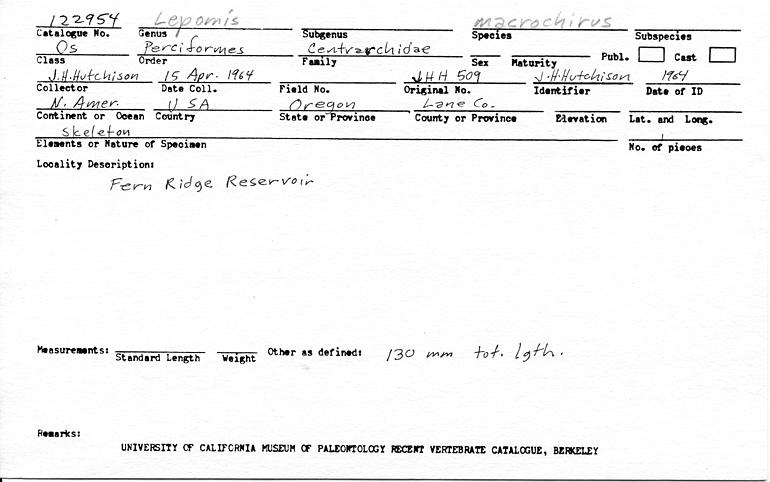 122954 Lepomis macrochirus
Catalogue No. Genus Subgenus Species Subspecies
Os Perciformes Centrarchidae Publ. Cast
Class Order Family Sex Maturity
J.H.Hutchison 15 Apr. 1964 JHH 509 J.H.Hutchison 1964
Collector Date Coll. Field No. Original No. Identifier Date of ID
N. Amer. USA Oregon Lane Co.
Continent or Ocean Country State or Province County or Province Elevation Lat. and Long.
skeleton 1
Elements or Nature of Specimen No. of pieces
Locality Description:
Fern Ridge Reservoir
Measurements: Other as defined: 130 mm tot. lgth.
Standard Length Weight
Remarks:
UNIVERSITY OF CALIFORNIA MUSEUM OF PALEONTOLOGY RECENT VERTEBRATE CATALOGUE, BERKELEY